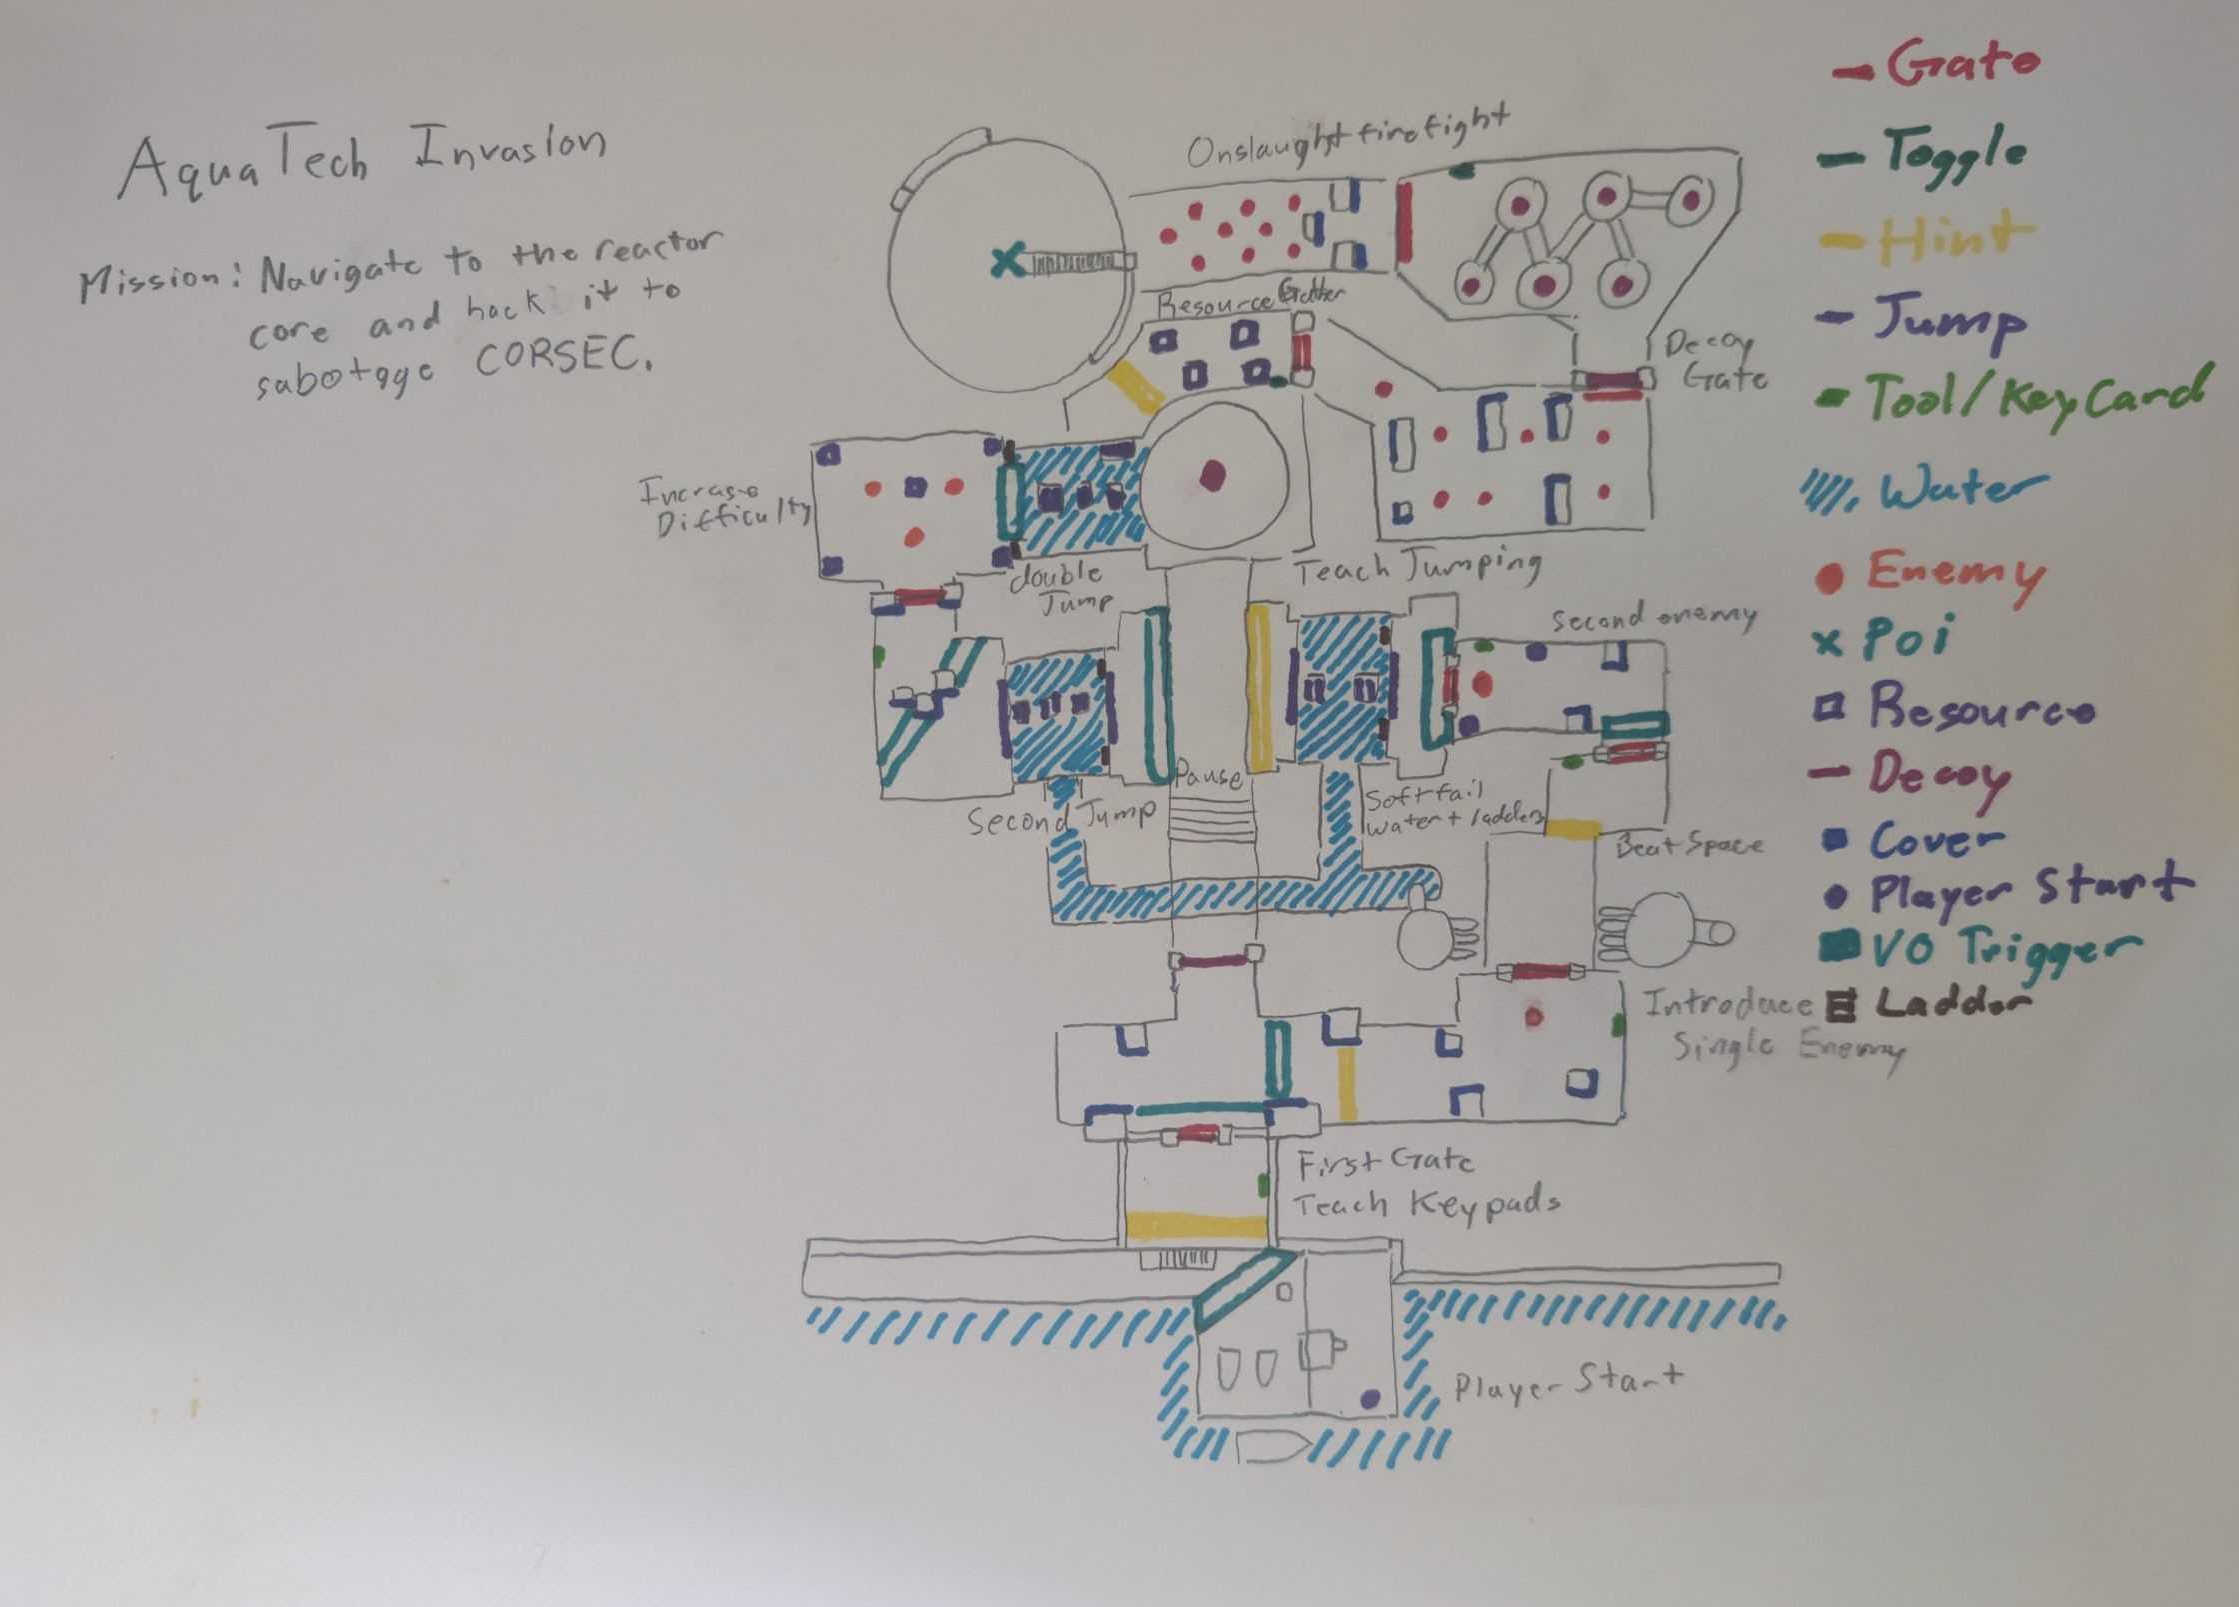 AquaTech Invasion
Mission: Navigate to the reactor
core and hack it to
sabotage CORSEC.
Onslaught firefight
Resource Gather
Decoy
Gate
Increase
Difficulty
double
Jump
Teach Jumping
second enemy
Pause
Second Jump
Softfail
water + ladders
Beat Space
Introduce
Single Enemy
First Gate
Teach Keypads
Player Start
Gate
Toggle
Hint
Jump
Tool/KeyCard
Water
Enemy
Poi
Resource
Decoy
Cover
Player Start
VO Trigger
Ladder